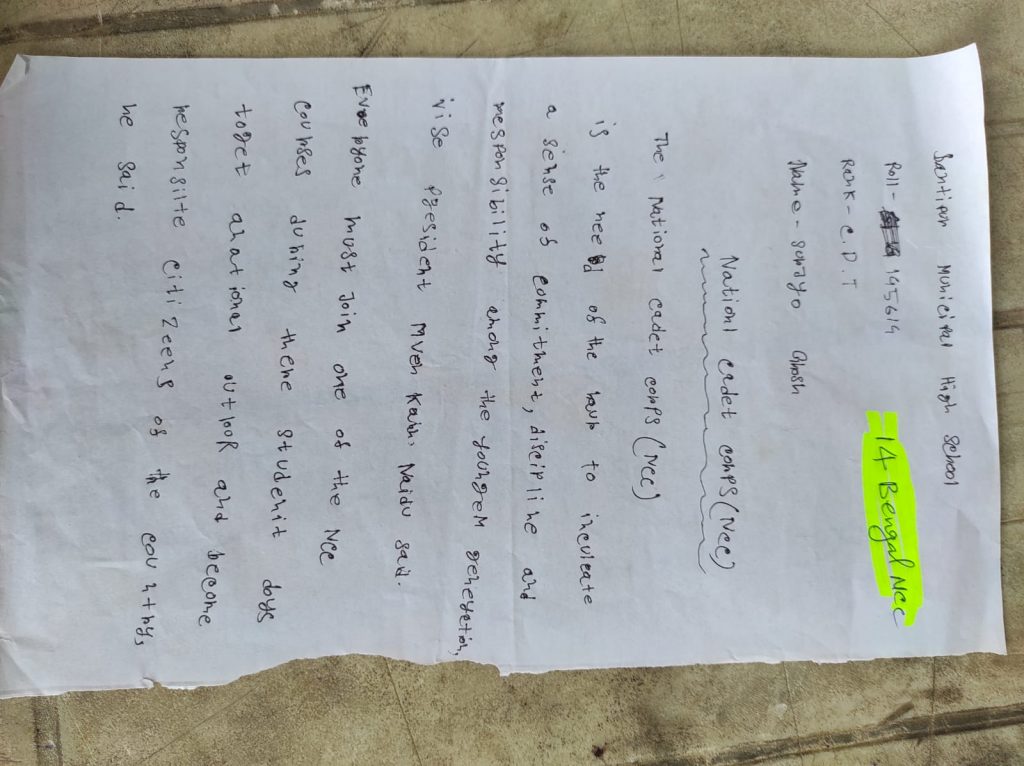 Santipur Municipal High School
Roll - 195614
- 14 Bengal NCC
Rank - C.D.T
Name - Sonjyo Ghosh
Nationl cadet corps (Ncc)
The National cadet corps (Ncc)
is the need of the hour to inculcate
a sense of commitment, discipline and
responsibility among the younger
vise president Naidu said.
Everyone must Join one of the Ncc
courses during there studenit days
toget arational outlook and become
responsilte citizeens of the countrys,
he said.